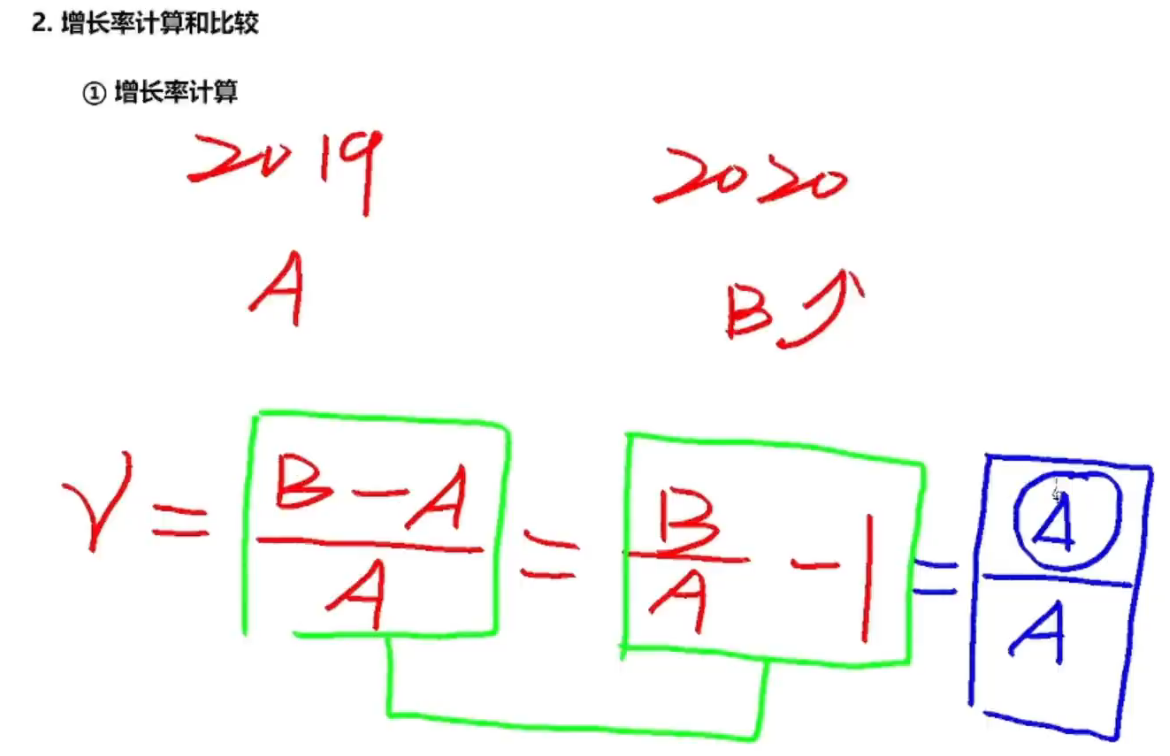 2. 增长率计算和比较
① 增长率计算
2019 2020
A B
r = B-A/A = B/A - 1 = Δ/A